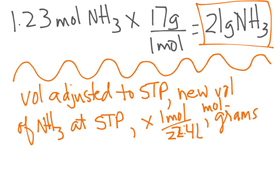 1.23 mol NH3 × 17g/1mol = 21g NH3
vol adjusted to STP, new vol
of NH3 at STP, × 1mol/22.4L mol- grams